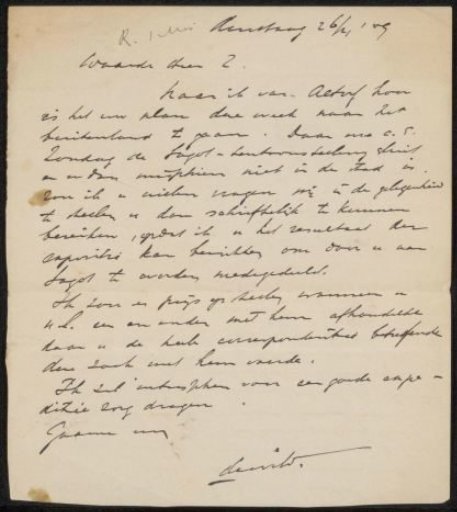 Dinsdag 26/4 '09
Waarde heer Z.
Naar ik van Actorf hoor
is het uw plan deze week naar het
buitenland te gaan. Daar nu a.s.
Zondag de Sagot-tentoonstelling sluit
en u dan misschien niet in de stad is,
zou ik u willen vragen mij in de gelegenheid
te stellen u dan schriftelijk te kunnen
bereiken, opdat ik u het resultaat der
expositie kan berichten om door u aan
Sagot te worden medegedeeld.
Ik zou er prijs op stellen wanneer u
een en ander met hem afhandelde
daar u de heele correspondentie betreffende
deze zaak met hem voerde.
Ik zal intusschen voor een goede expe-
ditie zorg dragen.
Gaarne uw
de Wild.